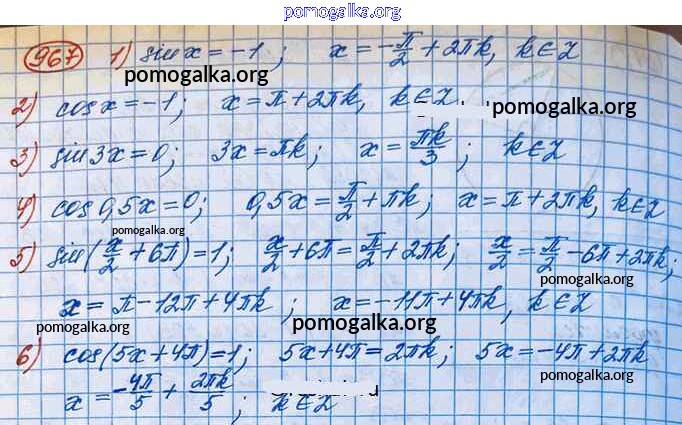 pomogalka.org
967 1) sin x = -1; x = -π/2 + 2πk, k∈Z
pomogalka.org
2) cos x = -1; x = π + 2πk, k∈Z
pomogalka.org
3) sin 3x = 0; 3x = πk; x = πk/3; k∈Z
4) cos 0,5x = 0; 0,5x = π/2 + πk; x = π + 2πk, k∈Z
pomogalka.org
5) sin(x/2 + 6π) = 1; x/2 + 6π = π/2 + 2πk; x/2 = π/2 - 6π + 2πk;
pomogalka.org
x = π - 12π + 4πk; x = -11π + 4πk, k∈Z
pomogalka.org pomogalka.org
6) cos(5x + 4π) = 1; 5x + 4π = 2πk; 5x = -4π + 2πk
pomogalka.org
x = -4π/5 + 2πk/5; k∈Z